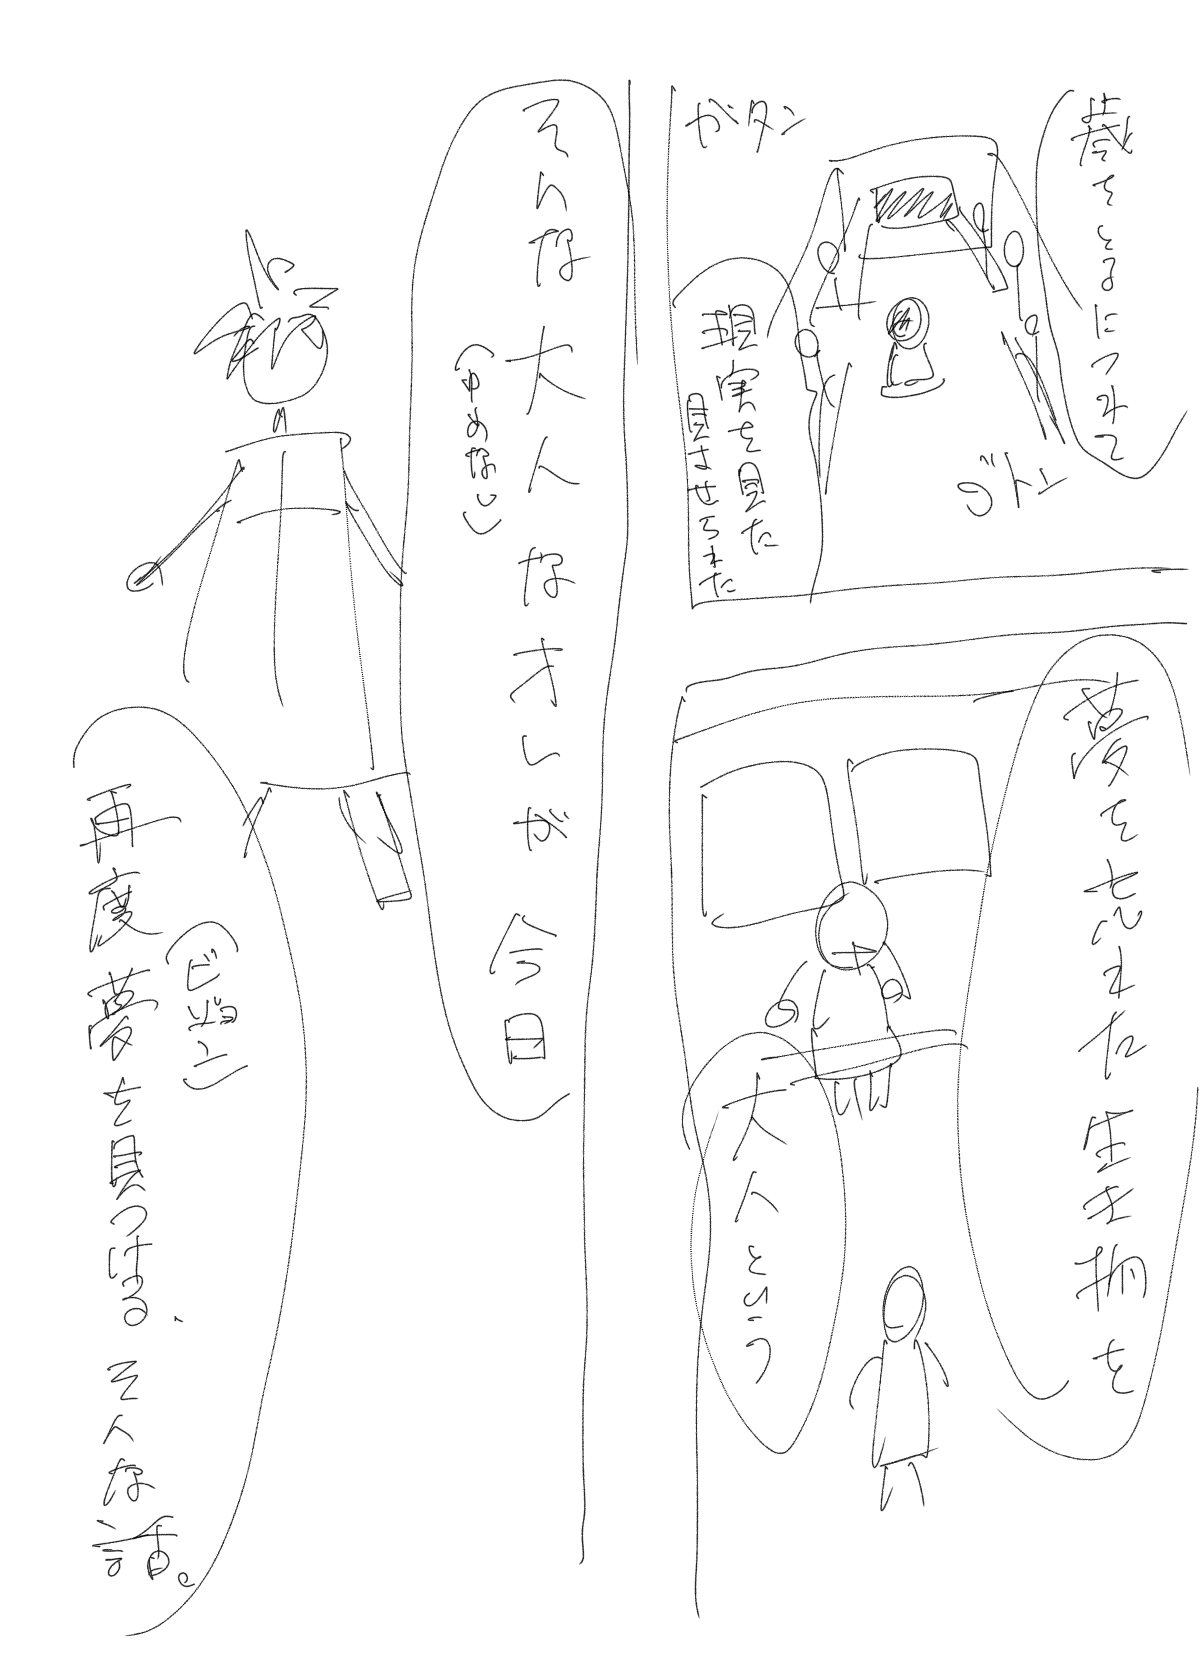 歳をとるにつれて
ガタン
ゴトン
現実を見た
見させられた
夢を忘れた生き物を
大人という
そんな大人なオレが今日
(ゆめない)
再度夢を見つけるそんな話。